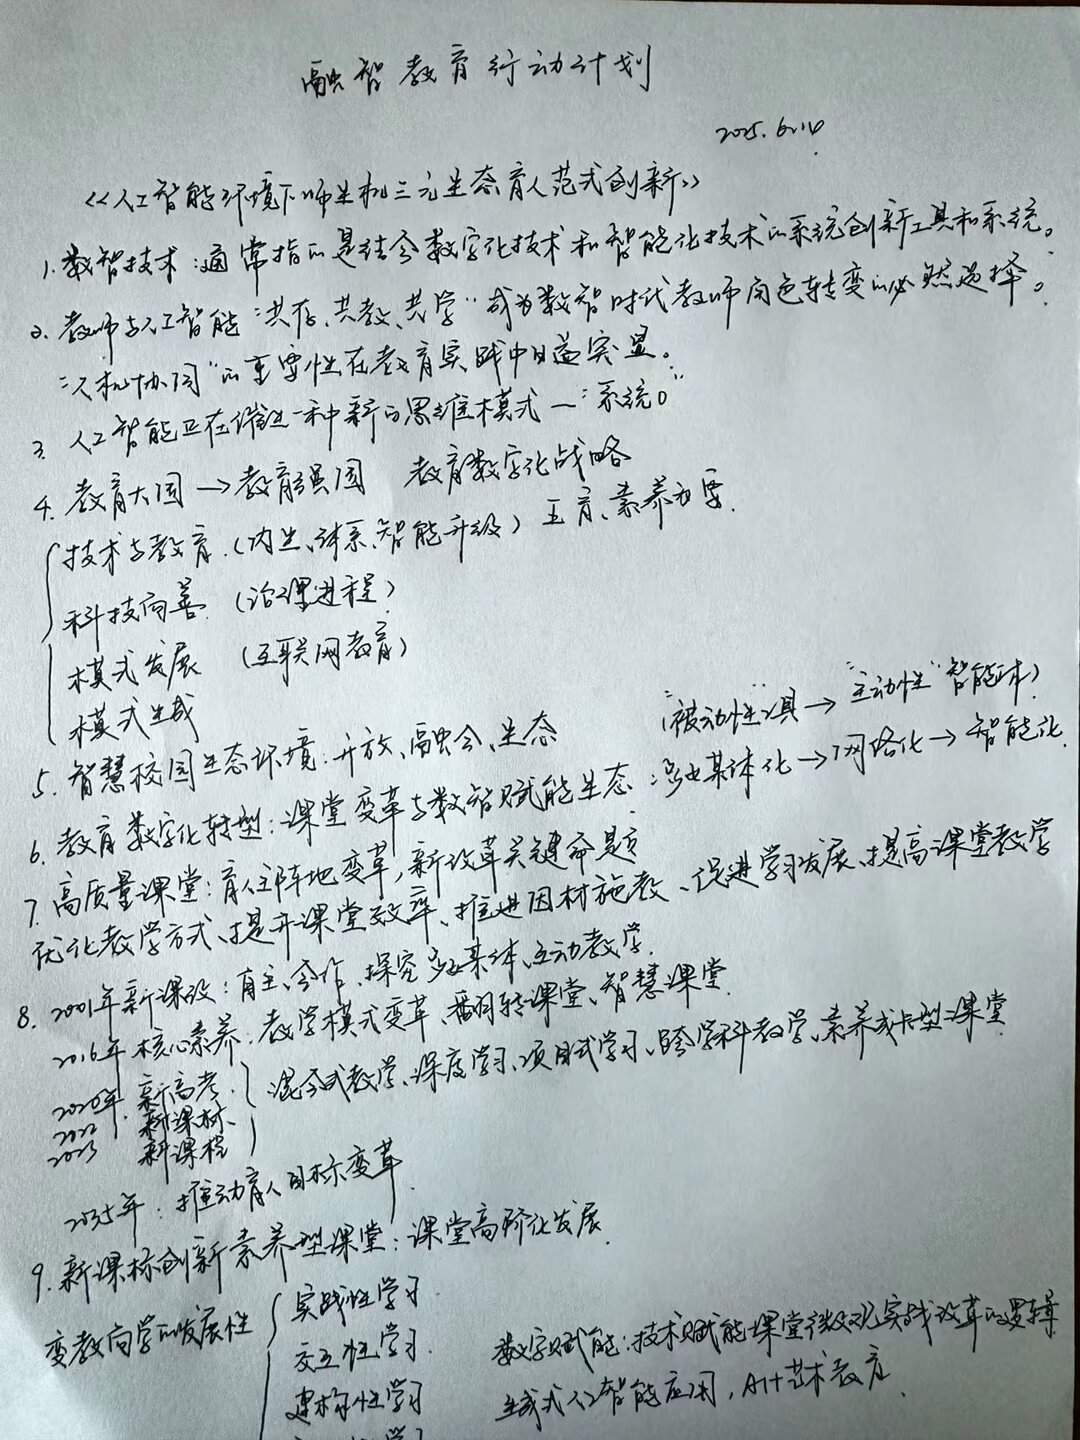 融智教育行动计划
2025.6.14
《人工智能环境下师生机三元生态育人范式创新》
1. 数智技术：通常指的是结合数字化技术和智能化技术的系统创新工具和系统。
2. 教师与人工智能“共存、共教、共学”成为数智时代教师角色转变的必然选择。
“人机协同”的重要性在教育实践中日益突显。
3. 人工智能正在催进一种新的思维模式—“系统。”
4. 教育大国→教育强国 教育数字化战略
技术与教育.(内生、体系、智能升级) 五育、素养为要.
科技向善 (治理进程)
模式发展 (互联网教育)
模式生成
5. 智慧校园生态环境：开放、融合、生态 (“被动性”工具→“主动性”智能体)
6. 教育数字化转型：课堂变革与数智赋能生态：多媒体化→网络化→智能化.
7. 高质量课堂：育人主阵地变革，新改革关键命题
优化教学方式、提升课堂效率、推进因材施教、促进学习发展、提高课堂教学
8. 2001年新课改：自主、合作、探究多媒体、互动教学.
2016年核心素养.教学模式变革、翻转课堂、智慧课堂.
2020年.新高考. 混合式教学、深度学习、项目式学习、跨学科教学、素养成长型课堂
2022 新课标.
2023 新课程
2035年：推动育人目标变革.
9. 新课标创新素养型课堂：课堂高阶化发展.
变教向学的发展性 实践性学习.
交互性学习. 数字赋能：技术赋能课堂微观实践改革的逻辑
建构性学习 生成式人工智能应用，AI+艺术教育.